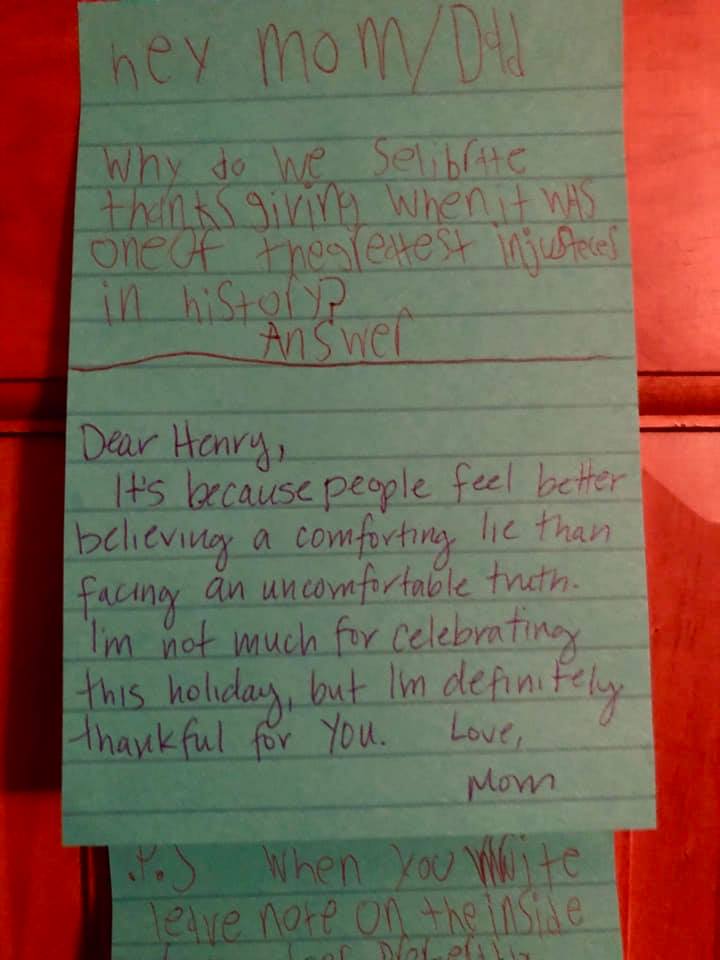 hey mom/Dad
Why do we Selibrate
thanksgiving when it WAS
one of the greatest injusteces
in history?
Answer
Dear Henry,
It's because people feel better
believing a comforting lie than
facing an uncomfortable truth.
I'm not much for celebrating
this holiday, but I'm definitely
thankful for you. Love,
Mom
.P.S When you write
leave note on the inside